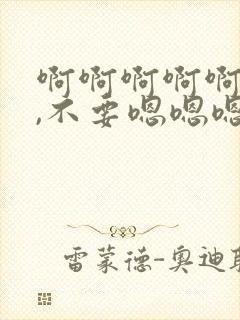 啊啊啊啊啊
,不要嗯嗯嗯
雷蒙德-奥迪